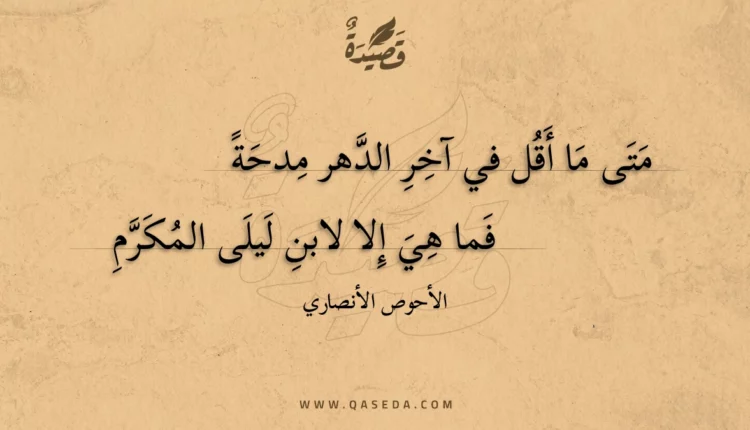 قَصِيْدَةٌ
مَتَى مَا أَقُل في آخِرِ الدَّهر مِدحَةً
فَما هِيَ إِلا لابنِ لَيلَى المُكَرَّمِ
الأحوص الأنصاري
WWW.QASEDA.COM